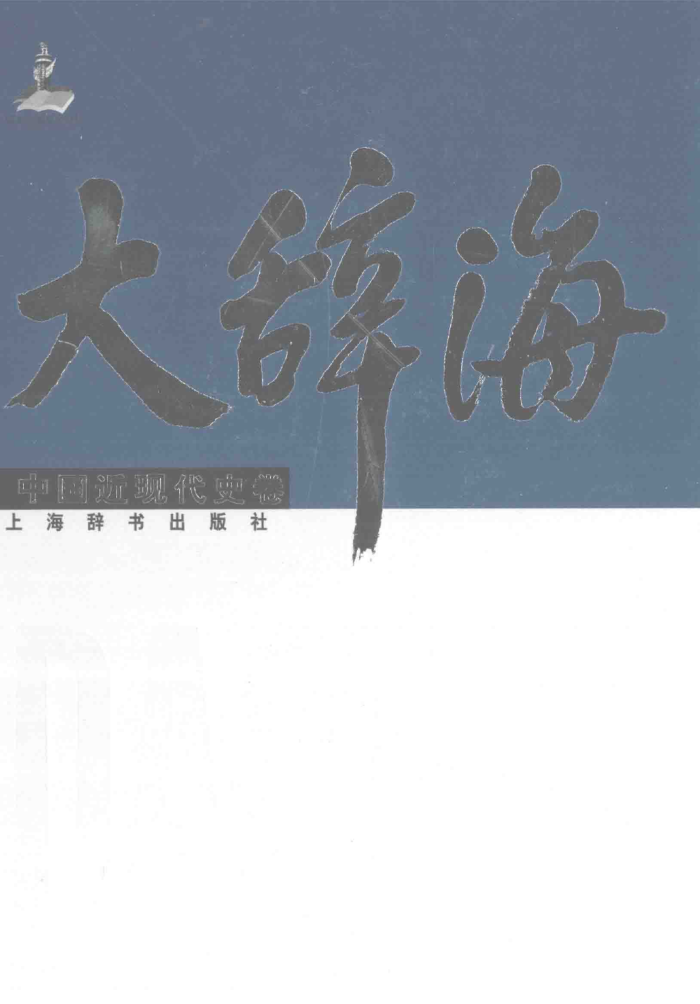 大辞海
中国近现代史卷
上海辞书出版社